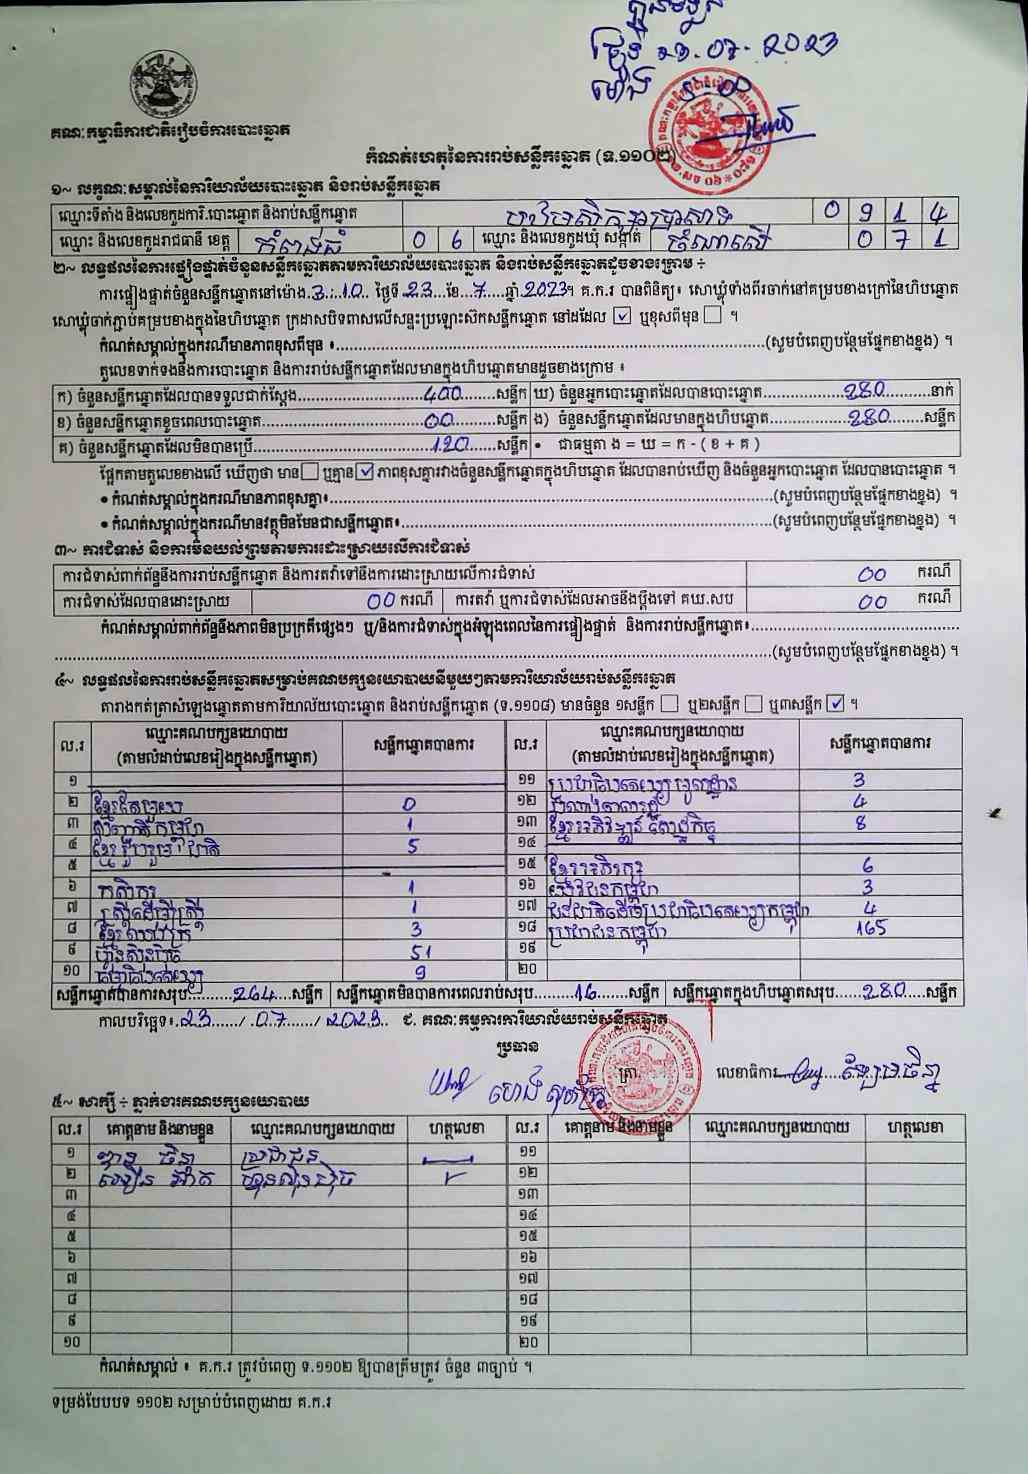 ថ្ងៃទី ២៣.០៧.2023
ម៉ោង
គណៈកម្មាធិការជាតិរៀបចំការបោះឆ្នោត
កំណត់ហេតុនៃការរាប់សន្លឹកឆ្នោត (ទ.១១០២)
១~ លក្ខណៈសម្គាល់នៃការិយាល័យបោះឆ្នោត និងរាប់សន្លឹកឆ្នោត
ឈ្មោះទីតាំង និងលេខកូដការិ.បោះឆ្នោត និងរាប់សន្លឹកឆ្នោត 0 9 1 4
ឈ្មោះ និងលេខកូដរាជធានី ខេត្ត កំពង់ធំ 0 6 ឈ្មោះ និងលេខកូដឃុំ សង្កាត់ ចំណាលើ 0 7 1
២~ លទ្ធផលនៃការផ្ទៀងផ្ទាត់ចំនួនសន្លឹកឆ្នោតតាមការិយាល័យបោះឆ្នោត និងរាប់សន្លឹកឆ្នោតដូចខាងក្រោម ÷
ការផ្ទៀងផ្ទាត់ចំនួនសន្លឹកឆ្នោតនៅម៉ោង 3:10 ថ្ងៃទី 23 ខែ 7 ឆ្នាំ 2023។ គ.ក.រ បានពិនិត្យ៖ សោឃ្លុំទាំងពីរចាក់នៅគម្របខាងក្រៅនៃហិបឆ្នោត
សោឃ្លុំចាក់ភ្ជាប់គម្របខាងក្នុងនៃហិបឆ្នោត ក្រដាសបិទពាសលើសន្ទះប្រឡោះស៊កសន្លឹកឆ្នោត នៅដដែល ☑ ឬខុសពីមុន ☐ ។
កំណត់សម្គាល់ក្នុងករណីមានភាពខុសពីមុន ៖ (សូមបំពេញបន្ថែមផ្នែកខាងខ្នង) ។
តួលេខទាក់ទងនឹងការបោះឆ្នោត និងការរាប់សន្លឹកឆ្នោតដែលមានក្នុងហិបឆ្នោតមានដូចខាងក្រោម ៖
ក) ចំនួនសន្លឹកឆ្នោតដែលបានទទួលជាក់ស្តែង 400 សន្លឹក ឃ) ចំនួនអ្នកបោះឆ្នោតដែលបានបោះឆ្នោត 280 នាក់
ខ) ចំនួនសន្លឹកឆ្នោតខូចពេលបោះឆ្នោត 00 សន្លឹក ង) ចំនួនសន្លឹកឆ្នោតដែលមានក្នុងហិបឆ្នោត 280 សន្លឹក
គ) ចំនួនសន្លឹកឆ្នោតដែលមិនបានប្រើ 120 សន្លឹក • ជាធម្មតា ង = ឃ = ក - ( ខ + គ )
ផ្អែកតាមតួលេខខាងលើ ឃើញថា មាន ☐ ឬគ្មាន ☑ ភាពខុសគ្នារវាងចំនួនសន្លឹកឆ្នោតក្នុងហិបឆ្នោត ដែលបានរាប់ឃើញ និងចំនួនអ្នកបោះឆ្នោត ដែលបានបោះឆ្នោត ។
• កំណត់សម្គាល់ក្នុងករណីមានភាពខុសគ្នា៖ (សូមបំពេញបន្ថែមផ្នែកខាងខ្នង) ។
• កំណត់សម្គាល់ក្នុងករណីមានវត្ថុមិនមែនជាសន្លឹកឆ្នោត៖ (សូមបំពេញបន្ថែមផ្នែកខាងខ្នង) ។
៣~ ការជំទាស់ និងការមិនយល់ព្រមតាមការដោះស្រាយលើការជំទាស់
ការជំទាស់ពាក់ព័ន្ធនឹងការរាប់សន្លឹកឆ្នោត និងការតវ៉ាទៅនឹងការដោះស្រាយលើការជំទាស់ 00 ករណី
ការជំទាស់ដែលបានដោះស្រាយ 00 ករណី ការតវ៉ា ឬការជំទាស់ដែលអាចនឹងប្តឹងទៅ គឃ.សប 00 ករណី
កំណត់សម្គាល់ពាក់ព័ន្ធនឹងភាពមិនប្រក្រតីផ្សេងៗ ឬ/និងការជំទាស់ក្នុងអំឡុងពេលនៃការផ្ទៀងផ្ទាត់ និងការរាប់សន្លឹកឆ្នោត៖
(សូមបំពេញបន្ថែមផ្នែកខាងខ្នង) ។
៤~ លទ្ធផលនៃការរាប់សន្លឹកឆ្នោតសម្រាប់គណបក្សនយោបាយនីមួយៗតាមការិយាល័យរាប់សន្លឹកឆ្នោត
តារាងកត់ត្រាសំឡេងឆ្នោតតាមការិយាល័យបោះឆ្នោត និងរាប់សន្លឹកឆ្នោត (ទ.១១០៨) មានចំនួន ១សន្លឹក ☐ ឬ២សន្លឹក ☐ ឬ៣សន្លឹក ☑ ។
ល.រ ឈ្មោះគណបក្សនយោបាយ (តាមលំដាប់លេខរៀងក្នុងសន្លឹកឆ្នោត) សន្លឹកឆ្នោតបានការ ល.រ ឈ្មោះគណបក្សនយោបាយ (តាមលំដាប់លេខរៀងក្នុងសន្លឹកឆ្នោត) សន្លឹកឆ្នោតបានការ
១ ១១ ប្រជាធិបតេយ្យមូលដ្ឋាន 3
២ ខ្មែរតែមួយ 0 ១២ 4
៣ សញ្ជាតិកម្ពុជា 1 ១៣ ខ្មែរអភិវឌ្ឍន៍សេដ្ឋកិច្ច 8
៤ ខ្មែររួបរួមជាតិ 5 ១៤
៥ ១៥ ខ្មែរអភិរក្ស 6
៦ កសិករ 1 ១៦ យុវជនកម្ពុជា 3
៧ ស្ត្រីដើម្បីស្ត្រី 1 ១៧ ជនជាតិដើមប្រជាធិបតេយ្យកម្ពុជា 4
៨ ខ្មែរឈប់ក្រ 3 ១៨ ប្រជាជនកម្ពុជា 165
៩ ហ្វ៊ុនស៊ិនប៉ិច 51 ១៩
១០ ធម្មាធិបតេយ្យ 9 ២០
សន្លឹកឆ្នោតបានការសរុប 264 សន្លឹក សន្លឹកឆ្នោតមិនបានការពេលរាប់សរុប 16 សន្លឹក សន្លឹកឆ្នោតក្នុងហិបឆ្នោតសរុប 280 សន្លឹក
កាលបរិច្ឆេទ៖ 23 / 07 / 2023 ជ. គណៈកម្មការការិយាល័យរាប់សន្លឹកឆ្នោត
ប្រធាន
ត្រា
លេខាធិការ
៥~ សាក្សី ÷ ភ្នាក់ងារគណបក្សនយោបាយ
ល.រ គោត្តនាម និងនាមខ្លួន ឈ្មោះគណបក្សនយោបាយ ហត្ថលេខា ល.រ គោត្តនាម និងនាមខ្លួន ឈ្មោះគណបក្សនយោបាយ ហត្ថលេខា
១ ប្រជាជន ១១
២ ហ្វ៊ុនស៊ិនប៉ិច ១២
៣ ១៣
៤ ១៤
៥ ១៥
៦ ១៦
៧ ១៧
៨ ១៨
៩ ១៩
១០ ២០
កំណត់សម្គាល់ ៖ គ.ក.រ ត្រូវបំពេញ ទ.១១០២ ឱ្យបានត្រឹមត្រូវ ចំនួន ៣ច្បាប់ ។
ទម្រង់បែបបទ ១១០២ សម្រាប់បំពេញដោយ គ.ក.រ